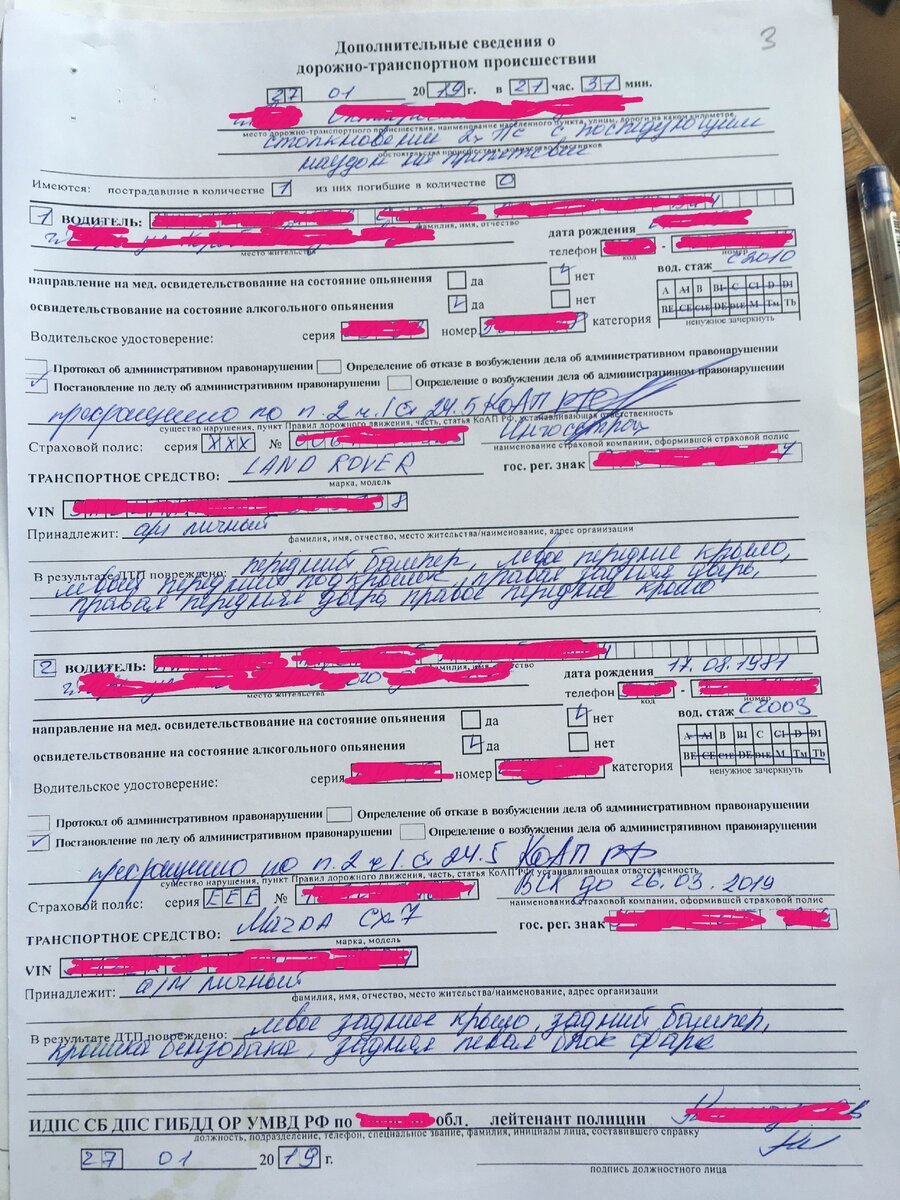 3
Дополнительные сведения о
дорожно-транспортном происшествии
27 01 2019 г. в 21 час. 37 мин.
место дорожно-транспортного происшествия, наименование населенного пункта, улицы, дороги на каком километре
столкновение 2х т/с с последующим
обстоятельства происшествия, количество участников
наездом на препятствие
Имеются: пострадавшие в количестве 1 из них погибшие в количестве 0
1 ВОДИТЕЛЬ:
фамилия, имя, отчество
дата рождения
место жительства
телефон -
код номер
направление на мед. освидетельствование на состояние опьянения да нет вод. стаж с 2010
освидетельствование на состояние алкогольного опьянения да нет
A A1 B B1 C C1 D D1
BE CE C1E DE D1E M Tm Tb
ненужное зачеркнуть
Водительское удостоверение: серия номер категория
Протокол об административном правонарушении Определение об отказе в возбуждении дела об административном правонарушении
Постановление по делу об административном правонарушении Определение о возбуждении дела об административном правонарушении
прекращено по п.2 ч.1 ст 24.5 КоАП РФ
существо нарушения, пункт Правил дорожного движения, часть, статья КоАП РФ, устанавливающая ответственность
Страховой полис: серия XXX № Ингосстрах
наименование страховой компании, оформившей страховой полис
ТРАНСПОРТНОЕ СРЕДСТВО: LAND ROVER гос. рег. знак
марка, модель
VIN 8
Принадлежит: а/м личный
фамилия, имя, отчество, место жительства/наименование, адрес организации
В результате ДТП повреждено: передний бампер, левое переднее крыло,
левый передний подкрылок, правая задняя дверь,
правая передняя дверь, правое переднее крыло
2 ВОДИТЕЛЬ:
фамилия, имя, отчество
дата рождения 17.08.1981
место жительства
телефон -
код номер
направление на мед. освидетельствование на состояние опьянения да нет вод. стаж с 2003
освидетельствование на состояние алкогольного опьянения да нет
A A1 B B1 C C1 D D1
BE CE C1E DE D1E M Tm Tb
ненужное зачеркнуть
Водительское удостоверение: серия номер категория
Протокол об административном правонарушении Определение об отказе в возбуждении дела об административном правонарушении
Постановление по делу об административном правонарушении Определение о возбуждении дела об административном правонарушении
прекращено по п.2 ч.1 ст 24.5 КоАП РФ
существо нарушения, пункт Правил дорожного движения, часть, статья КоАП РФ, устанавливающая ответственность
Страховой полис: серия ЕЕЕ № ВСК до 26.03.2019
наименование страховой компании, оформившей страховой полис
ТРАНСПОРТНОЕ СРЕДСТВО: Мазда СХ7 гос. рег. знак
марка, модель
VIN
Принадлежит: а/м личный
фамилия, имя, отчество, место жительства/наименование, адрес организации
В результате ДТП повреждено: левое заднее крыло, задний бампер,
крышка бензобака, задняя левая блок фара
ИДПС СБ ДПС ГИБДД ОР УМВД РФ по обл. лейтенант полиции
должность, подразделение, телефон, специальное звание, фамилия, инициалы лица, составившего справку
27 01 2019 г.
подпись должностного лица